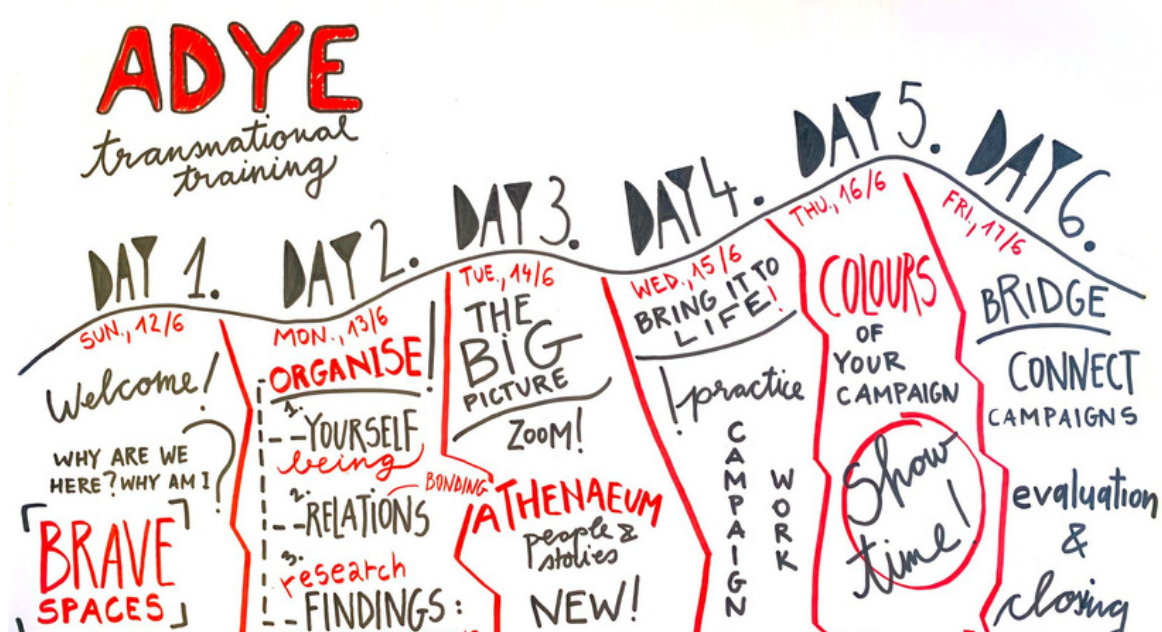 ADYE
transnational
training
DAY 1.
SUN., 12/6
Welcome!
WHY ARE WE
HERE? WHY AM I?
BRAVE
SPACES
DAY 2.
MON., 13/6
ORGANISE!
1. YOURSELF
being
BONDING
2. RELATIONS
3. research
FINDINGS:
DAY 3.
TUE., 14/6
THE
BiG
PICTURE
ZOOM!
ATHENAEUM
people &
stories
NEW!
DAY 4.
WED., 15/6
BRING IT TO
LIFE!
! practice
CAMPAIGN
WORK
DAY 5.
THU., 16/6
COLOURS
OF
YOUR
CAMPAIGN
Show
time!
DAY 6.
FRI., 17/6
BRIDGE
CONNECT
CAMPAIGNS
evaluation
&
closing